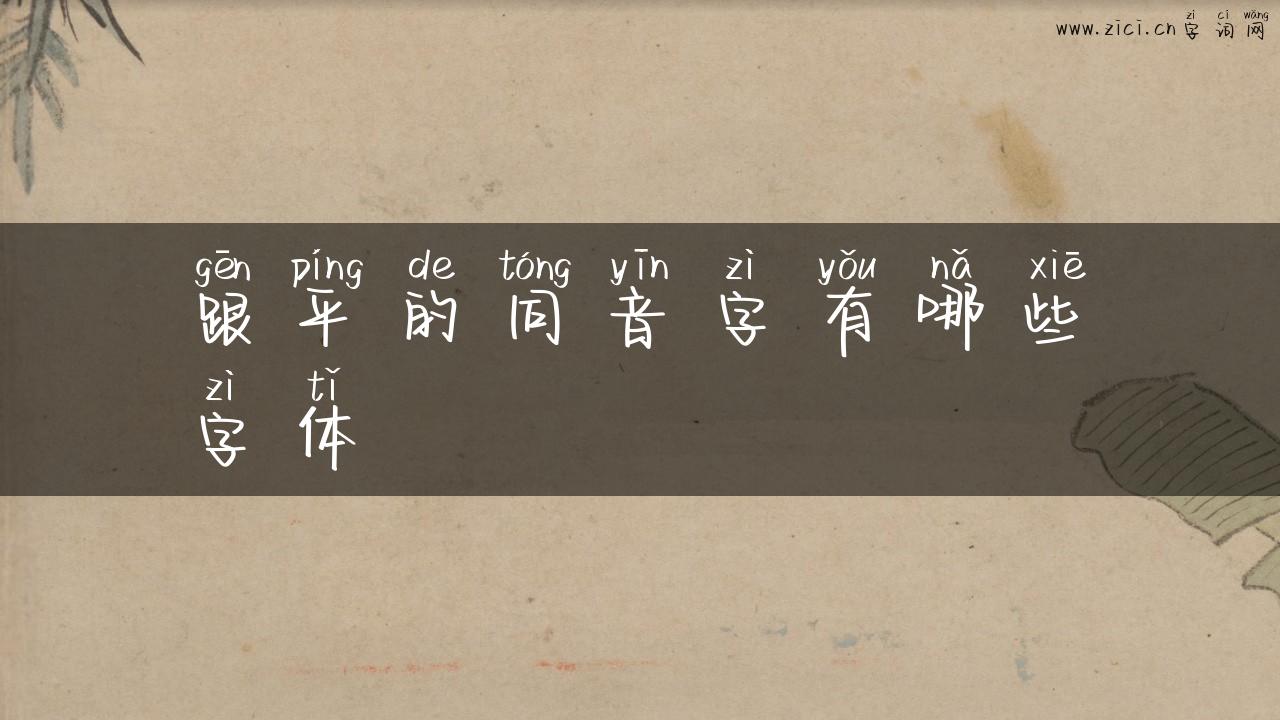 zì cí wǎng
www.zici.cn 字词网
gēn píng de tóng yīn zì yǒu nǎ xiē
跟平的同音字有哪些
zì tǐ
字体